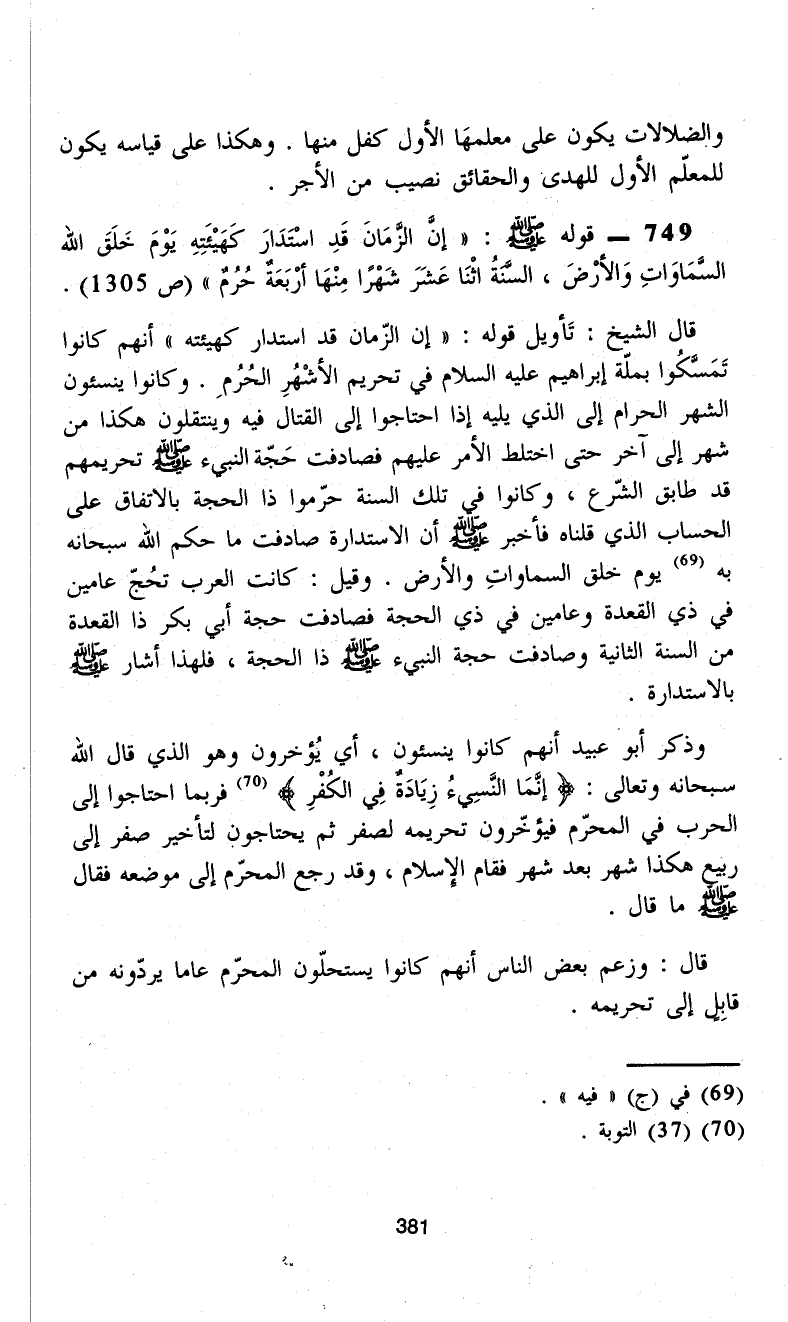 والضلالات يكون على معلمهَا الأول كفل منها . وهكذا على قياسه يكون
للمعلّم الأول للهدى والحقائق نصيب من الأجر .
749 ـ قوله ﷺ : « إنَّ الزَّمَانَ قَدِ اسْتَدَارَ كَهَيْئَتِهِ يَوْمَ خَلَقَ الله
السَّمَاوَاتِ وَالأرْضَ ، السَّنَةُ اثْنَا عَشَرَ شَهْرًا مِنْهَا أرْبَعَةٌ حُرُمٌ » (ص 1305) .
قال الشيخ : تَأويل قوله : « إن الزّمان قد استدار كهيئته » أنهم كانوا
تَمَسَّكُوا بملّة إبراهيم عليه السلام في تحريم الأشْهُرِ الحُرُمِ . وكانوا ينسئون
الشهر الحرام إلى الذي يليه إذا احتاجوا إلى القتال فيه وينتقلون هكذا من
شهر إلى آخر حتى اختلط الأمر عليهم فصادفت حَجّة النبيء ﷺ تحريمهم
قد طابق الشّرع ، وكانوا في تلك السنة حرّموا ذا الحجة بالاتفاق على
الحساب الذي قلناه فأخبر ﷺ أن الاستدارة صادفت ما حكم الله سبحانه
به (69) يوم خلق السماواتِ والأرض . وقيل : كانت العرب تحُجّ عامين
في ذي القعدة وعامين في ذي الحجة فصادفت حجة أبي بكر ذا القعدة
من السنة الثانية وصادفت حجة النبيء ﷺ ذا الحجة ، فلهذا أشار ﷺ
بالاستدارة .
وذكر أبو عبيد أنهم كانوا ينسئون ، أي يُؤخرون وهو الذي قال الله
سبحانه وتعالى : ﴿ إنَّمَا النَّسِيءُ زِيَادَةٌ فِي الكُفْرِ ﴾ (70) فربما احتاجوا إلى
الحرب في المحرّم فيؤخّرون تحريمه لصفر ثم يحتاجون لتأخير صفر إلى
ربيع هكذا شهر بعد شهر فقام الإسلام ، وقد رجع المحرّم إلى موضعه فقال
ﷺ ما قال .
قال : وزعم بعض الناس أنهم كانوا يستحلّون المحرّم عاما يردّونه من
قابِلٍ إلى تحريمه .
(69) في (ج) « فيه » .
(70) (37) التوبة .
381